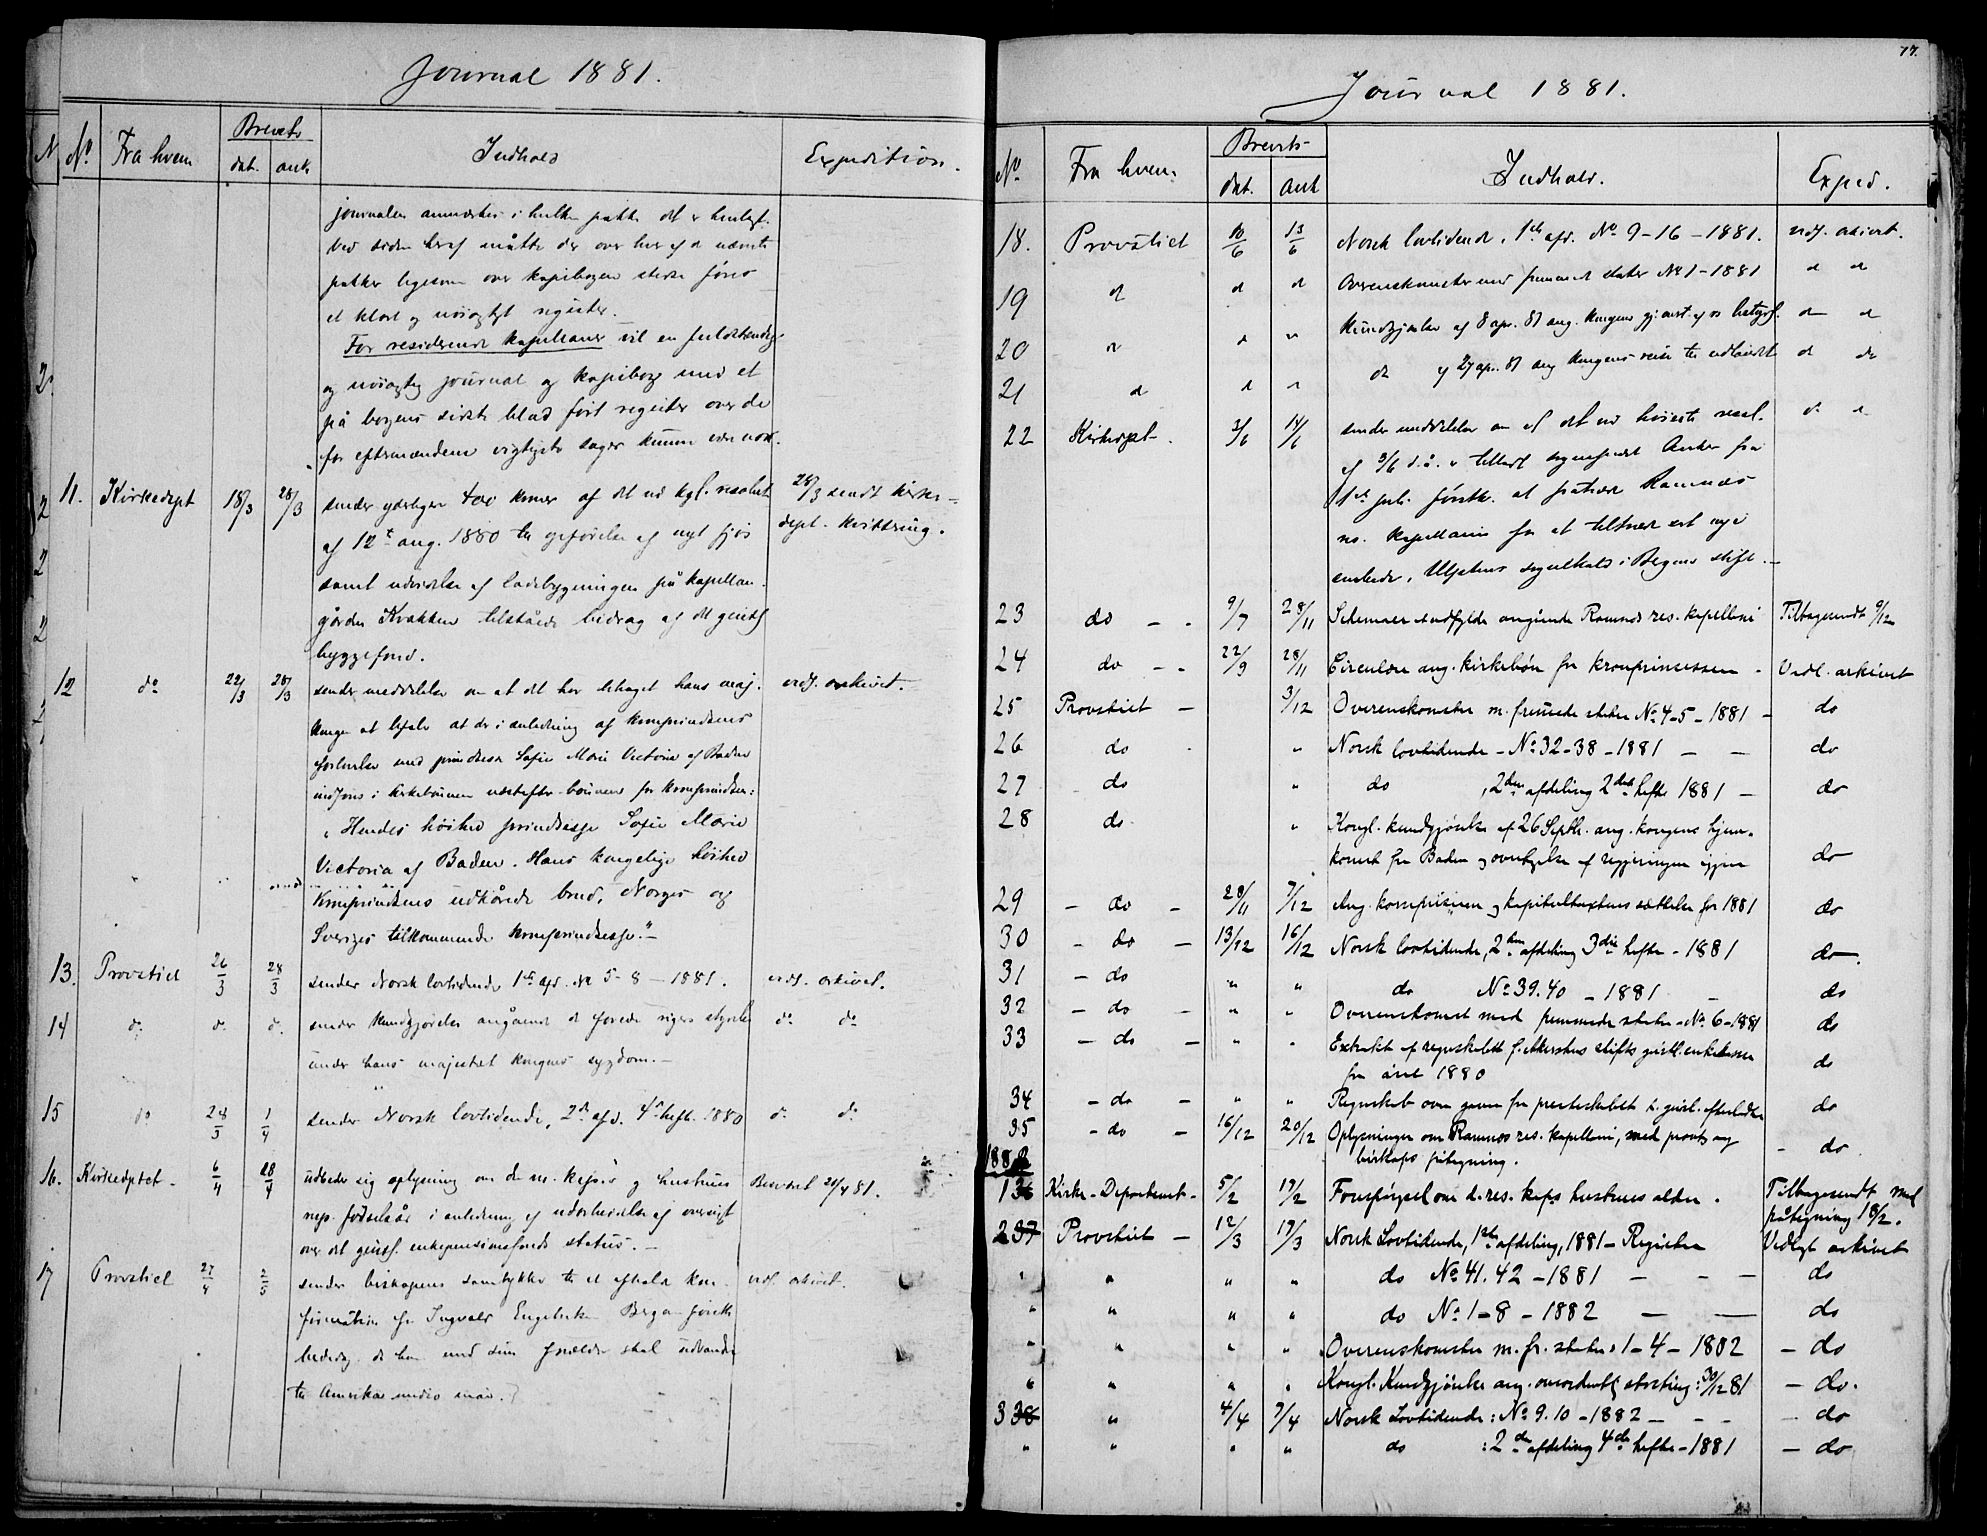 Journal 1881.
No. Fra hvem Brevets dat. ank. Indhold Expedition.
journalen anmærkes i hvilken pakke det er henlagt.
Ved siden heraf måtte der over hver af de nævnte
pakker ligesom over kopibogen sterke føres
et klart og nøiagtigt register.
For residerende kapellaner vil en fuldstændig
og nøiagtig journal og kopibog med et
på bogens sidste blad ført register over de
for eftermændene vigtigste sager kunne være nok.
11. Kirkedept 18/3 28/3 sender yderligere 400 kroner af det ved kgl. resolut 28/3 sendt kirke-
af 12te aug. 1880 til opførelse af nyt fjøs dept. kvittring.
samt udvidelse af ladebygningen på kapellan-
gården Krakken tilståede bidrag af det geistl.
byggefond.
12 do 22/3 28/3 sender meddelelse om at det har behaget hans maj. vedl. arkivet.
kongen at befale at der i anledning af kronprindsens
forlovelse med prindsesse Sofie Marie Victoria af Baden
indføres i kirkebønnen næstefter bønnen for kronprindsen:
"Hendes høihed prindsesse Sofie Marie
Victoria af Baden. Hans kongelige høihed
Kronprindsens udkårede brud, Norges og
Sveriges tilkommende kronprindsesse."
13. Provstiet 26/3 28/3 sender Norsk lovtidende 1ste afd. No 5-8 - 1881. vedl. arkivet.
14 do do do. sender kundgjørelse angående de forede rigers styrelse do do
under hans majestæt kongens sygdom.
15 do 28/3 1/4 sender Norsk lovtidende, 2den afd. 4de hefte 1880 do do
16. Kirkedeptet 6/4 28/4 udbeder sig oplysning om den res. kap.s og hustrues Besvaret 28/4 81.
resp. fødselsår i anledning af udarbeidelse af oversigt
over det geistl. enkepensionsfonds status.
17 Provstiet 27/4 2/5 sender biskopens samtykke til at afholde kon- vedl. arkivet.
firmation for Ingvald Engebretsen Berga førstk.
bededag, da han med sine forældre skal udvandre
til Amerika medio mai.
77.
Journal 1881.
No. Fra hvem Brevets dat. ank Indhold. Exped.
18. Provstiet 10/6 13/6 Norsk lovtidende, 1ste afd. No 9-16 - 1881. vedl. arkivet.
19 do do do Overenskomster med fremmede stater No 1 - 1881 do do
20 do Kundgjørelse af 8 apr. 81 ang. kongens
21 do do af 27 apr. 81 ang kongens reise til udlandet do do
22 Kirkedept. 3/6 14/6 sender meddelelse om at det ved høieste resol.
af 3/6 d.å. er tilladt sogneprest Anker fra
1ste juli førstk. at fratræde Ramnæs
res. kapellani for at tiltræde sit nye
embede, sognekald i Bergens stift.
23 do 9/7 28/11 Schemaer at udfylde angående Ramnæs res. kapellani Tilbagesendt 9/12
24 do 22/9 28/11 Circulære ang. kirkebøn for kronprinsessen - Vedl. arkivet
25 Provstiet 3/12 Overenskomster m. fremmede stater No 4-5 - 1881 - do
26 do " Norsk lovtidende - No 32-38 - 1881 - - do
27 do " do , 2den afdeling 2det hefte 1881 - do
28 do " Kongl. kundgjørelse af 26 Septbr. ang. kongens hjem-
komst fra Baden og overtagelse af regjeringen igjen do
29 - do - 28/11 7/12 Ang. kornprisernes og kapitelstaxtens sættelse for 1881 do
30 - do - 13/12 16/12 Norsk lovtidende, 2den afdeling 3die hefte - 1881 do.
31 - do " " do No 39. 40 - 1881 - do
32 - do - " " Overenskomst med fremmede stater - No. 6 - 1881 do
33 - do - " " Extrakt af regnskabet f. Akershus stifts geistl. enkekasse
for året 1880 do
34 - do - " " Regnskab over gaver fra presteskabet t. geistl. efterladte do
35 - do - 16/12 20/12 Oplysninger om Ramnæs res. kapellani, med provst og
biskops påtegning. - do
1882
1 36 Kirke-Departementet - 5/2 17/2 Forespørgsel om d. res. kaps hustrues alder. Tilbagesendt med
påtegning 18/2.
2 37 Provstiet - 12/3 17/3 Norsk Lovtidende, 1ste afdeling, 1881 - Register Vedlagt arkivet
" " " do No 41. 42 - 1881 - - - do
" " " " do No 1-8 - 1882 - - do
" " " " Overenskomster m. fr. stater 1-4 - 1882 - do
" " " " Kongl. Kundgjørelse ang. overordentlig storting: 30/12 81 - do.
3 38 " 4/4 7/4 Norsk Lovtidende: No 9. 10 - 1882 - - - do
" " " " do : 2den afdeling 4de hefte - 1881 - do